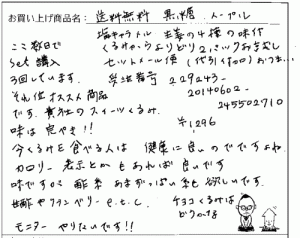 お買い上げ商品名: 送料無料 黒糖 メープル
塩キャラメル 生姜の4種の味付
くるみからよりどり2パックお試し
セットメール便 (代引くイロロ)
受注番号 229243-
20140602-
245502710
¥1296
ここ数日で
set 購入
3回しています。
それ位オススメ商品
です。貴社のスイーツくるみ。
味は完ペキ!!
今くるみを食べる人は 健康に良いのでですよね
カロリー 表示とかもあれば良いです
味ですが 酢系 あまずっぱい系も欲しいです。
黒酢やクランベリー e.t.c.
チョコくるみは
どうかな
モニター やりたいです!!